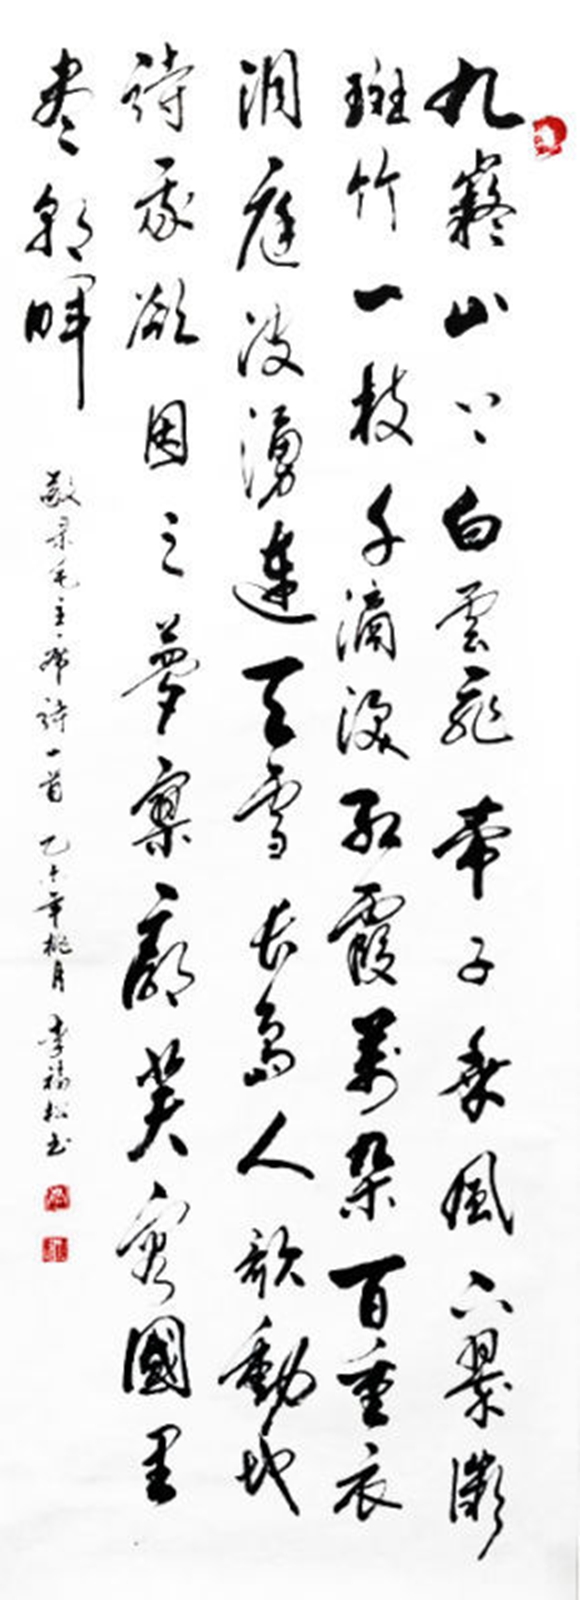 九嶷山上白雲飛帝子乘風下翠微
斑竹一枝千滴淚紅霞萬朵百重衣
洞庭波湧連天雪長島人歌動地
詩我欲因之夢寥廓芙容國里
尽朝暉
敬录毛主席詩一首 乙未年桃月 李福松书